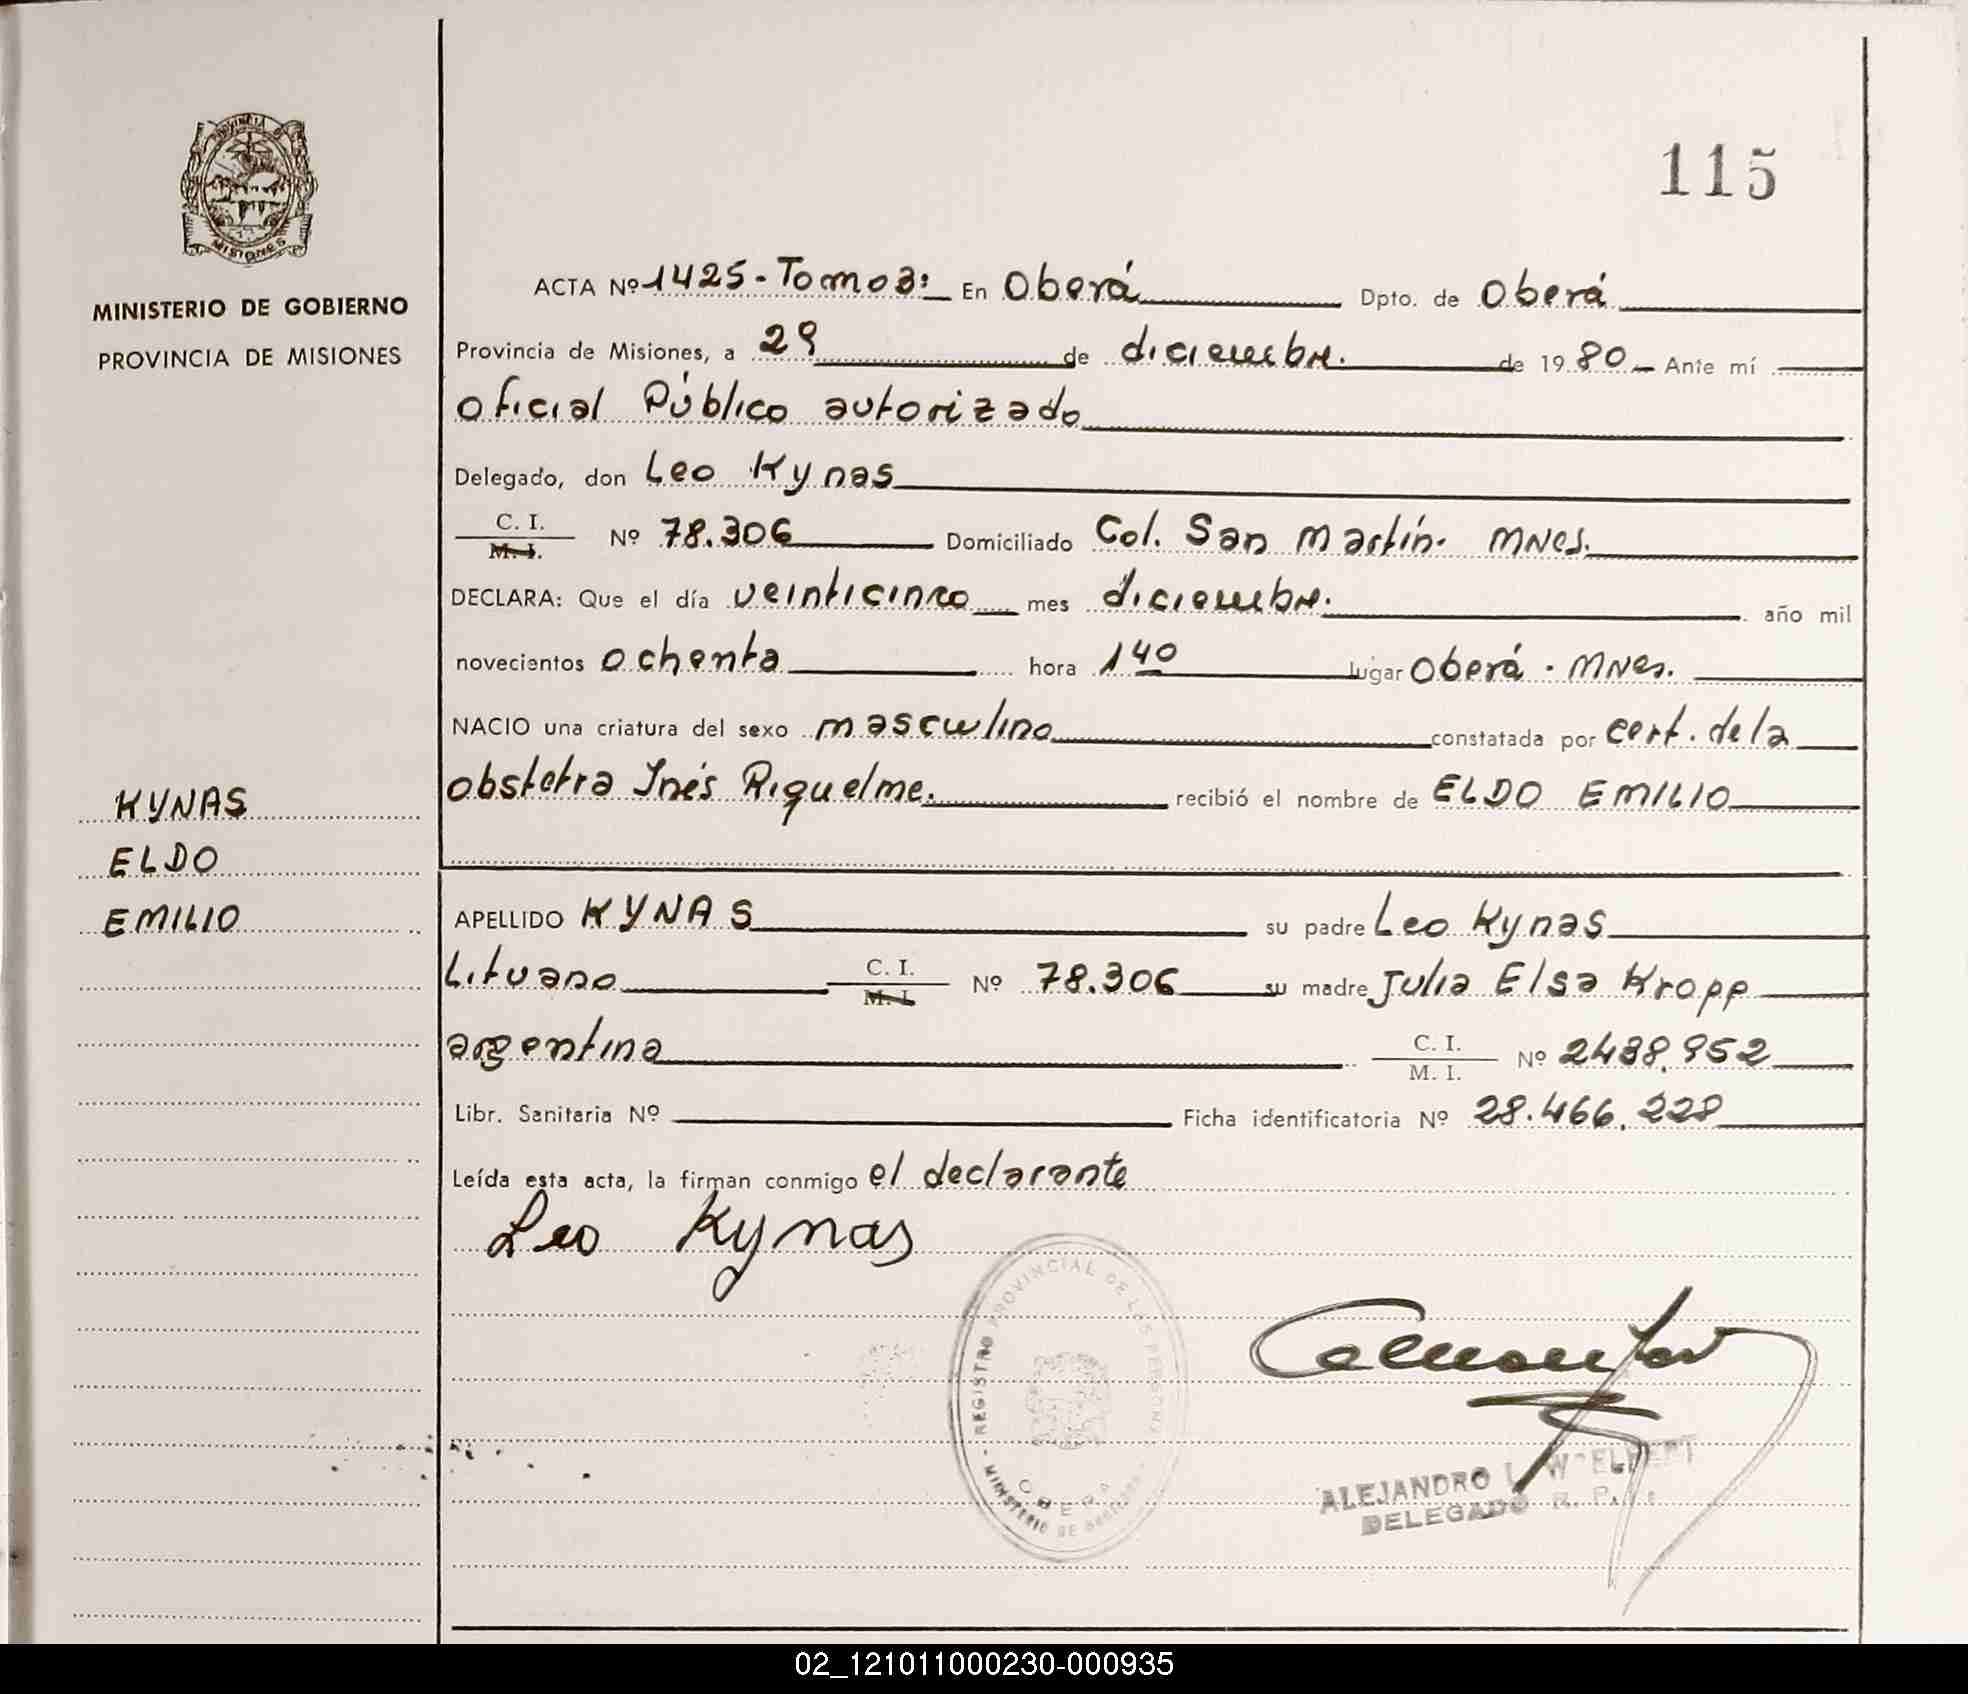 PROVINCIA DE
MISIONES
MINISTERIO DE GOBIERNO
PROVINCIA DE MISIONES
115
ACTA Nº 1425 - Tomo 3: En Oberá Dpto. de Oberá
Provincia de Misiones, a 29 de diciembre. de 1980 Ante mí
oficial Público autorizado
Delegado, don Leo Kynas
C. I.
M. I. Nº 78.306 Domiciliado Col. San Martín. MNes.
DECLARA: Que el día veinticinco mes diciembre. año mil
novecientos ochenta hora 1 40 lugar Oberá - MNes.
NACIO una criatura del sexo masculino constatada por cert. de la
obstetra Inés Riquelme. recibió el nombre de ELDO EMILIO
KYNAS
ELDO
EMILIO
APELLIDO KYNAS su padre Leo Kynas
Lituano C. I.
M. I. Nº 78.306 su madre Julia Elsa Kropp
argentina C. I.
M. I. Nº 2438.952
Libr. Sanitaria Nº Ficha identificatoria Nº 28.466.228
Leída esta acta, la firman conmigo el declarante
Leo Kynas
REGISTRO PROVINCIAL DE LAS PERSONAS
OBERA
MINISTERIO DE GOBIERNO
ALEJANDRO
DELEGADO R. P.
02_121011000230-000935